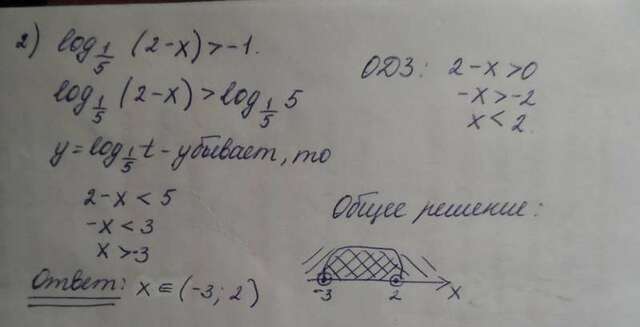 2) log_{1/5} (2-x) > -1.
log_{1/5} (2-x) > log_{1/5} 5
y = log_{1/5} t - убывает, то
2-x < 5
-x < 3
x > -3
Ответ: x ∈ (-3; 2)
ОДЗ: 2-x > 0
-x > -2
x < 2.
Общее решение:
-3 2 x